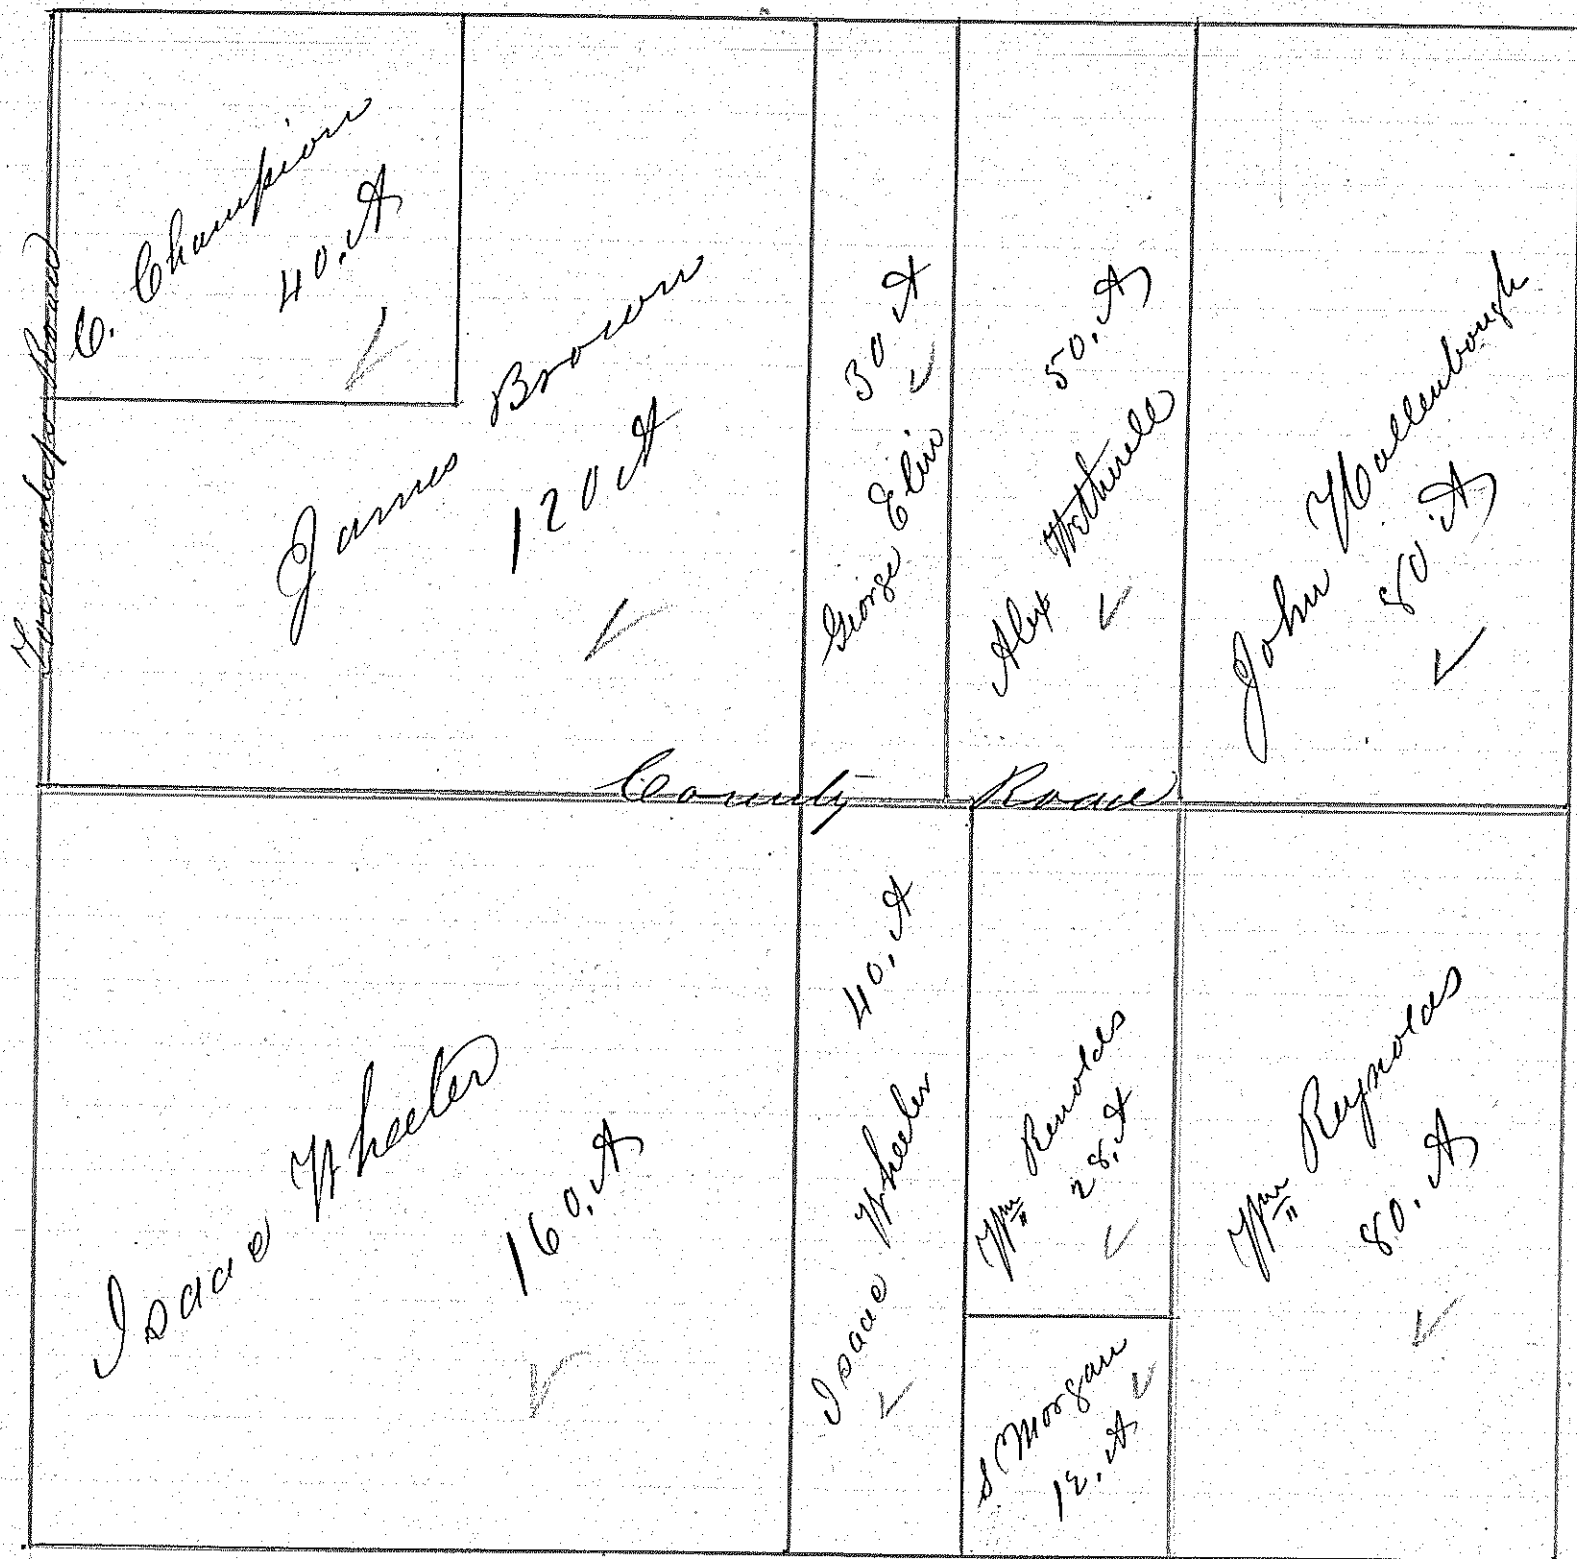 Township Road
C. Champion
40. A
James Brown
120 A
George Elin
30 A
Alex Wetherell
50. A
John Hallenbough
80 A
County Road
Isaac Wheeler
160. A
Isaac Wheeler
40. A
Wm Renolds
28. A
S Morgan
12. A
Wm Reynolds
80. A